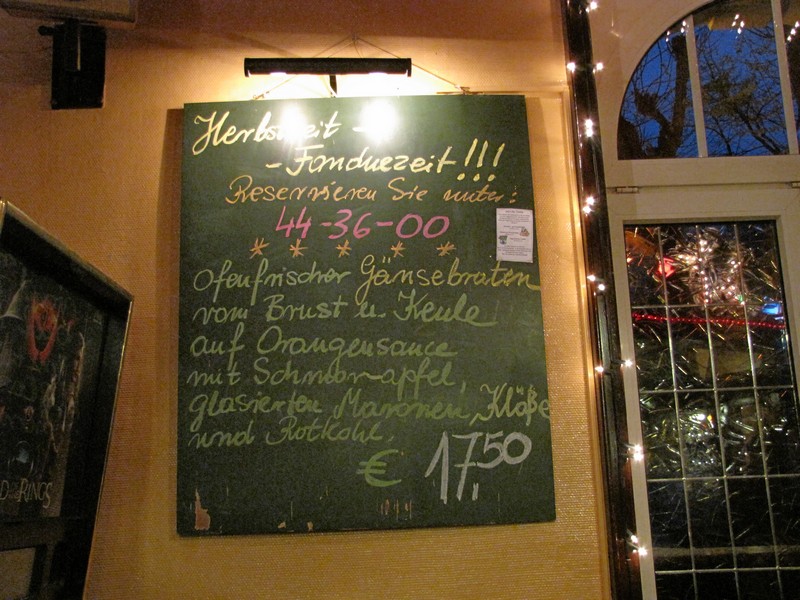 Herbstzeit -
- Fonduezeit!!!
Reservieren Sie unter:
44-36-00
* * * * *
Ofenfrischer Gänsebraten
vom Brust u. Keule
auf Orangensauce
mit Schmorapfel,
glasierten Maronen, Klöße
und Rotkohl.
€ 17,50
RINGS